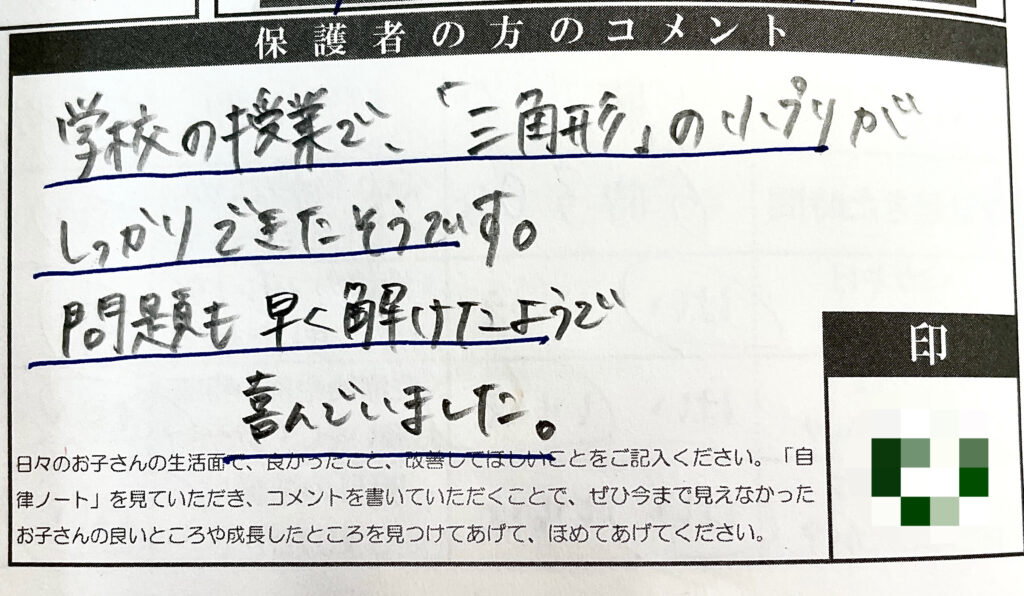 保護者の方のコメント
学校の授業で、「三角形」のプリが
しっかりできたそうです。
問題も早く解けたようで
喜んでいました。
印
日々のお子さんの生活面で、良かったこと、改善してほしいことをご記入ください。「自
律ノート」を見ていただき、コメントを書いていただくことで、ぜひ今まで見えなかった
お子さんの良いところや成長したところを見つけてあげて、ほめてあげてください。